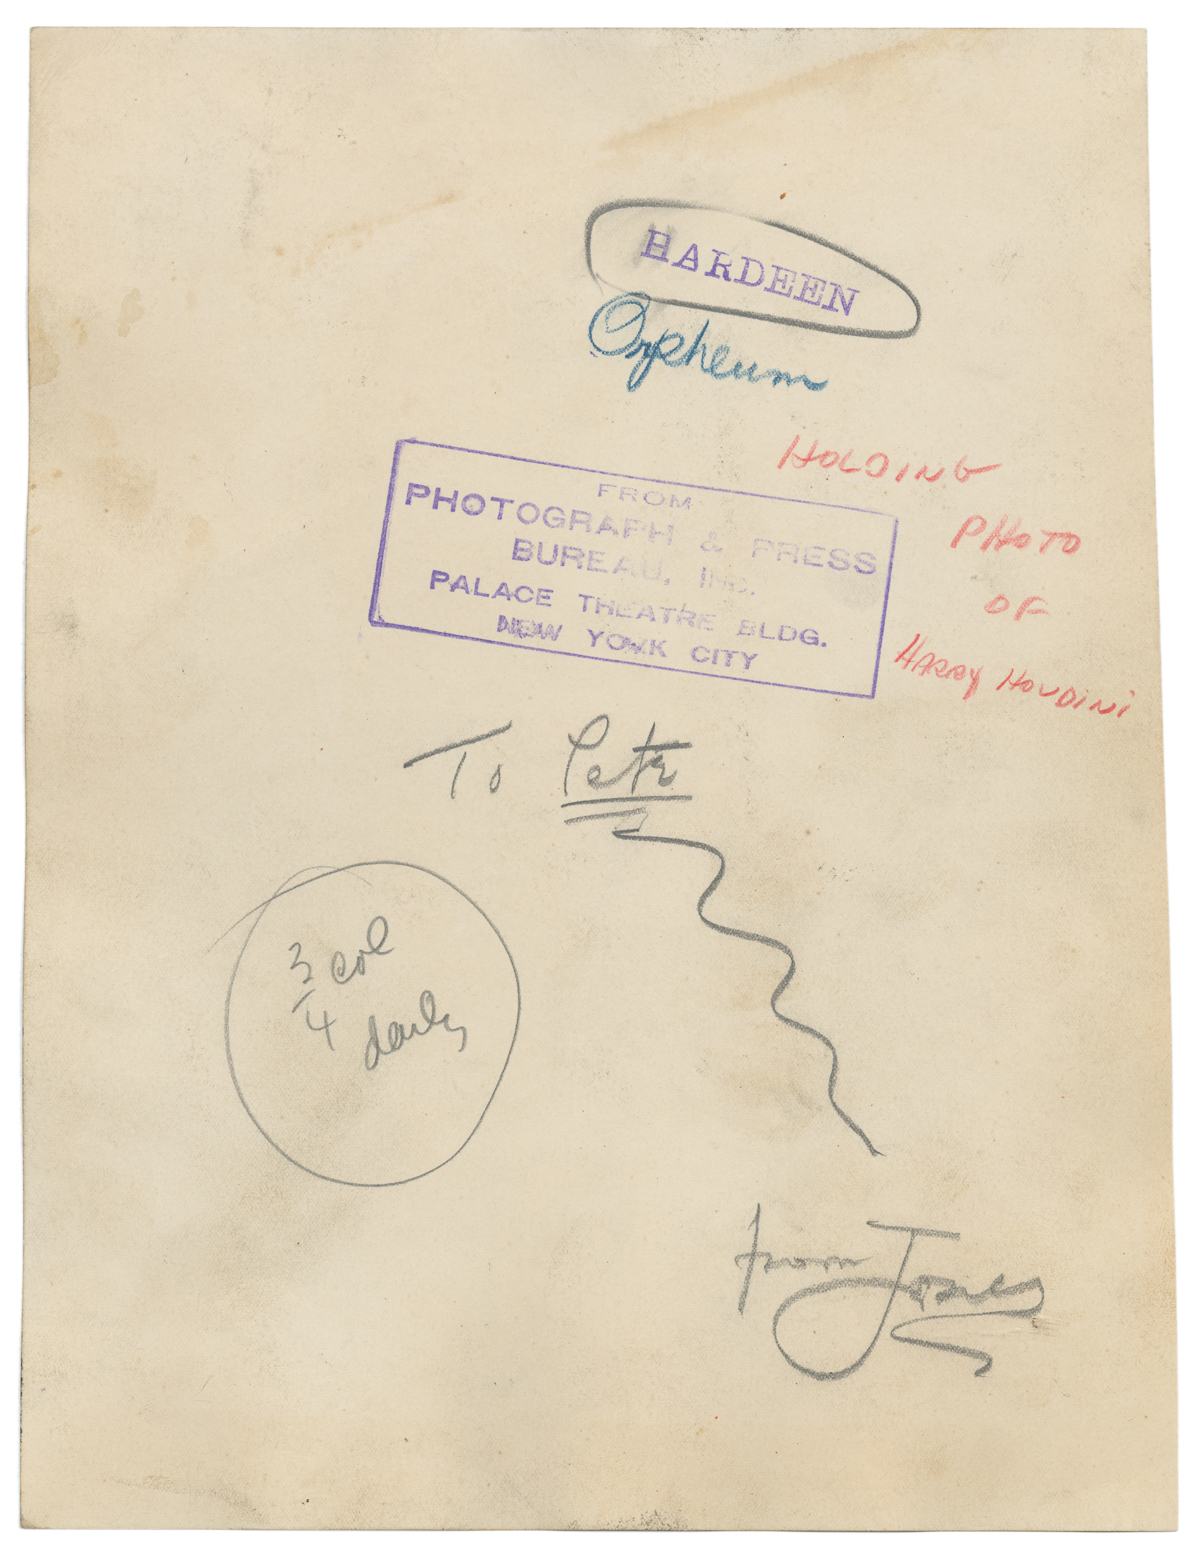 HARDEEN
Orpheum
HOLDING
PHOTO
OF
HARRY HOUDINI
FROM
PHOTOGRAPH & PRESS
BUREAU, INC.
PALACE THEATRE BLDG.
NEW YORK CITY
To Pete
3/4 col
daily
from Jones